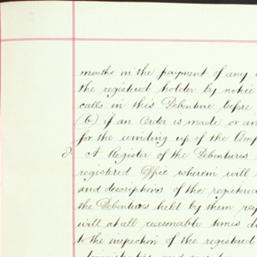 months in the payment of any
the registered holder by notice
calls in this Debenture before
(b) if an Order is made or an
for the winding up of the Comp
8. A Register of the Debentures
registered Office wherein will
and descriptions of the registered
the Debentures held by them resp
will at all reasonable times d
to the inspection of the registered